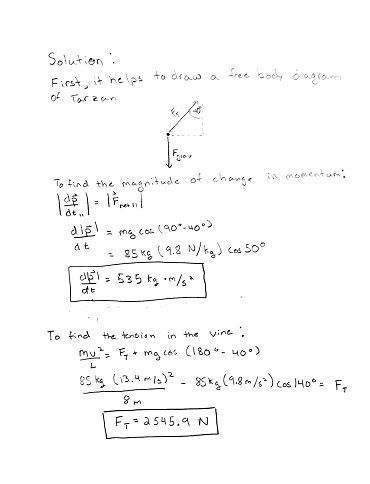 Solution:
First, it helps to draw a free body diagram
of Tarzan
F_T 40°
F_grav
To find the magnitude of change in momentum:
|dp⃗/dt_∥| = |F⃗_net ∥|
d|p⃗|/dt = mg cos (90°-40°)
= 85kg (9.8 N/kg) cos 50°
d|p⃗|/dt = 535 kg·m/s²
To find the tension in the vine:
mv²/L = F_T + mg cos (180° - 40°)
85 kg (13.4 m/s)²/8m - 85kg (9.8 m/s²) cos 140° = F_T
F_T = 2545.9 N